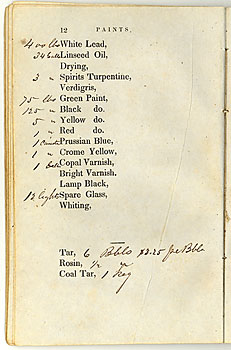 12 PAINTS.
400 lbs White Lead,
34 Galls Linseed Oil,
Drying,
3 " Spirits Turpentine,
Verdigris,
75 lbs Green Paint,
125 " Black do.
5 " Yellow do.
1 " Red do.
1 Prussian Blue,
1 " Crome Yellow,
1 Copal Varnish,
Bright Varnish.
Lamp Black,
12 lights Spare Glass,
" Whiting,
Tar, 6 Bbls $2.25 per Bbl
Rosin, 1/2 "
Coal Tar, 1 Keg